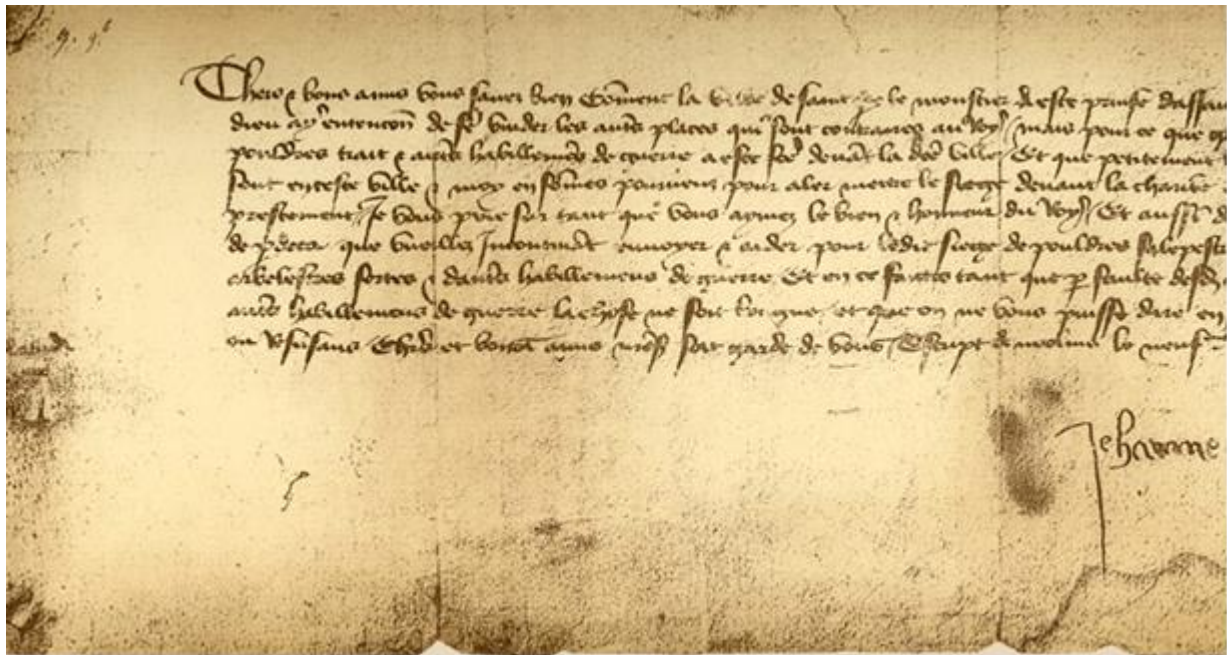 Chers & bons amis vous savez bien comment la ville de saint pere le moustier a este prinse dassau
dieu ay entencon de fe vuider les auts places qui sont contraires au Roy / mais pour ce que
pouldres trait & auts habillemens de guerre a este fce devant la dce ville / Et que petitement
sont en ceste ville & moy en somes pourveuz pour aler mectre le siege devant la charite
prestement / Je vous prie sur tant que vous aymez le bien & honneur du Roy / Et aussi
de p deca que vueillez Incontinat envoyer & aider pour ledit siege de pouldres salepestr
arbelestres fortes & dauts habillemens de guerre Et en ce faictes tant que p faulte desd
auts habillemens de guerre la chose ne soit longue / et que on ne vous puisse dire en
ou Refusans / Chers et bons amis nres soit garde de vous / Escript a molins le neuf
Jehanne